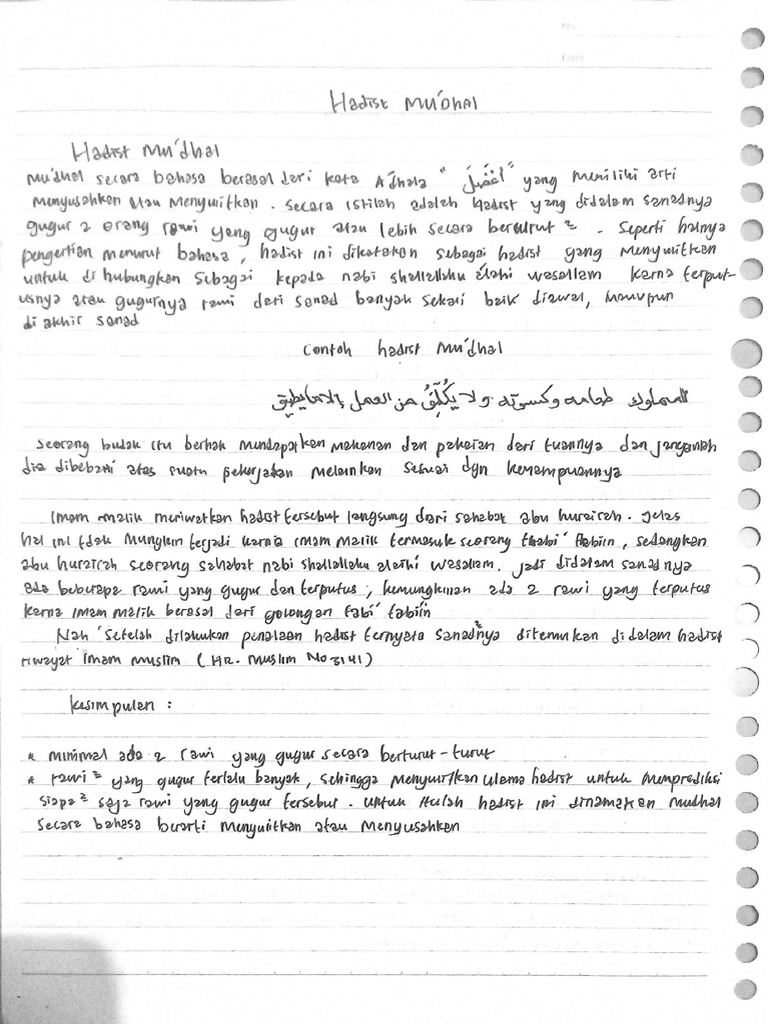 No.
Date
Hadist Mu'dhal
Hadist Mu'dhal
Mu'dhal secara bahasa berasal dari kata A'dhala "أَعْضَلَ" yang memiliki arti
menyusahkan atau menyulitkan. Secara istilah adalah hadist yang didalam sanadnya
gugur 2 orang rawi yang gugur atau lebih secara berturut². Seperti halnya
pengertian menurut bahasa, hadist ini dikatakan sebagai hadist yang menyulitkan
untuk di hubungkan sebagai kepada nabi shallallahu alaihi wasallam karna terput-
usnya atau gugurnya rawi dari sanad banyak sekali baik diawal, maupun
di akhir sanad
Contoh hadist Mu'dhal
للمملوك طعامه وكسوته ولا يُكلّفُ من العمل إلا ما يطيق
Seorang budak itu berhak mendapatkan makanan dan pakaian dari tuannya dan janganlah
dia dibebani atas suatu pekerjaan melainkan sesuai dgn kemampuannya
Imam malik meriwatkan hadist tersebut langsung dari sahabat abu hurairah. Jelas
hal ini tdak mungkin terjadi karna imam malik termasuk seorang thabi' tabiin, sedangkan
abu hurairah seorang sahabat nabi shallallahu alaihi wasallam. Jadi didalam sanadnya
ada beberapa rawi yang gugur dan terputus, kemungkinan ada 2 rawi yang terputus
karna imam malik berasal dari golongan tabi' tabiin
Nah setelah dilakukan penelaan hadist ternyata sanad²nya ditemukan didalam hadist
riwayat imam muslim (HR. Muslim No 3141)
Kesimpulan :
* minimal ada 2 rawi yang gugur secara berturut-turut
* rawi² yang gugur terlalu banyak, sehingga menyulitkan ulama hadist untuk memprediksi
siapa² saja rawi yang gugur tersebut. untuk itulah hadist ini dinamakan mudhal
secara bahasa berarti menyulitkan atau menyusahkan